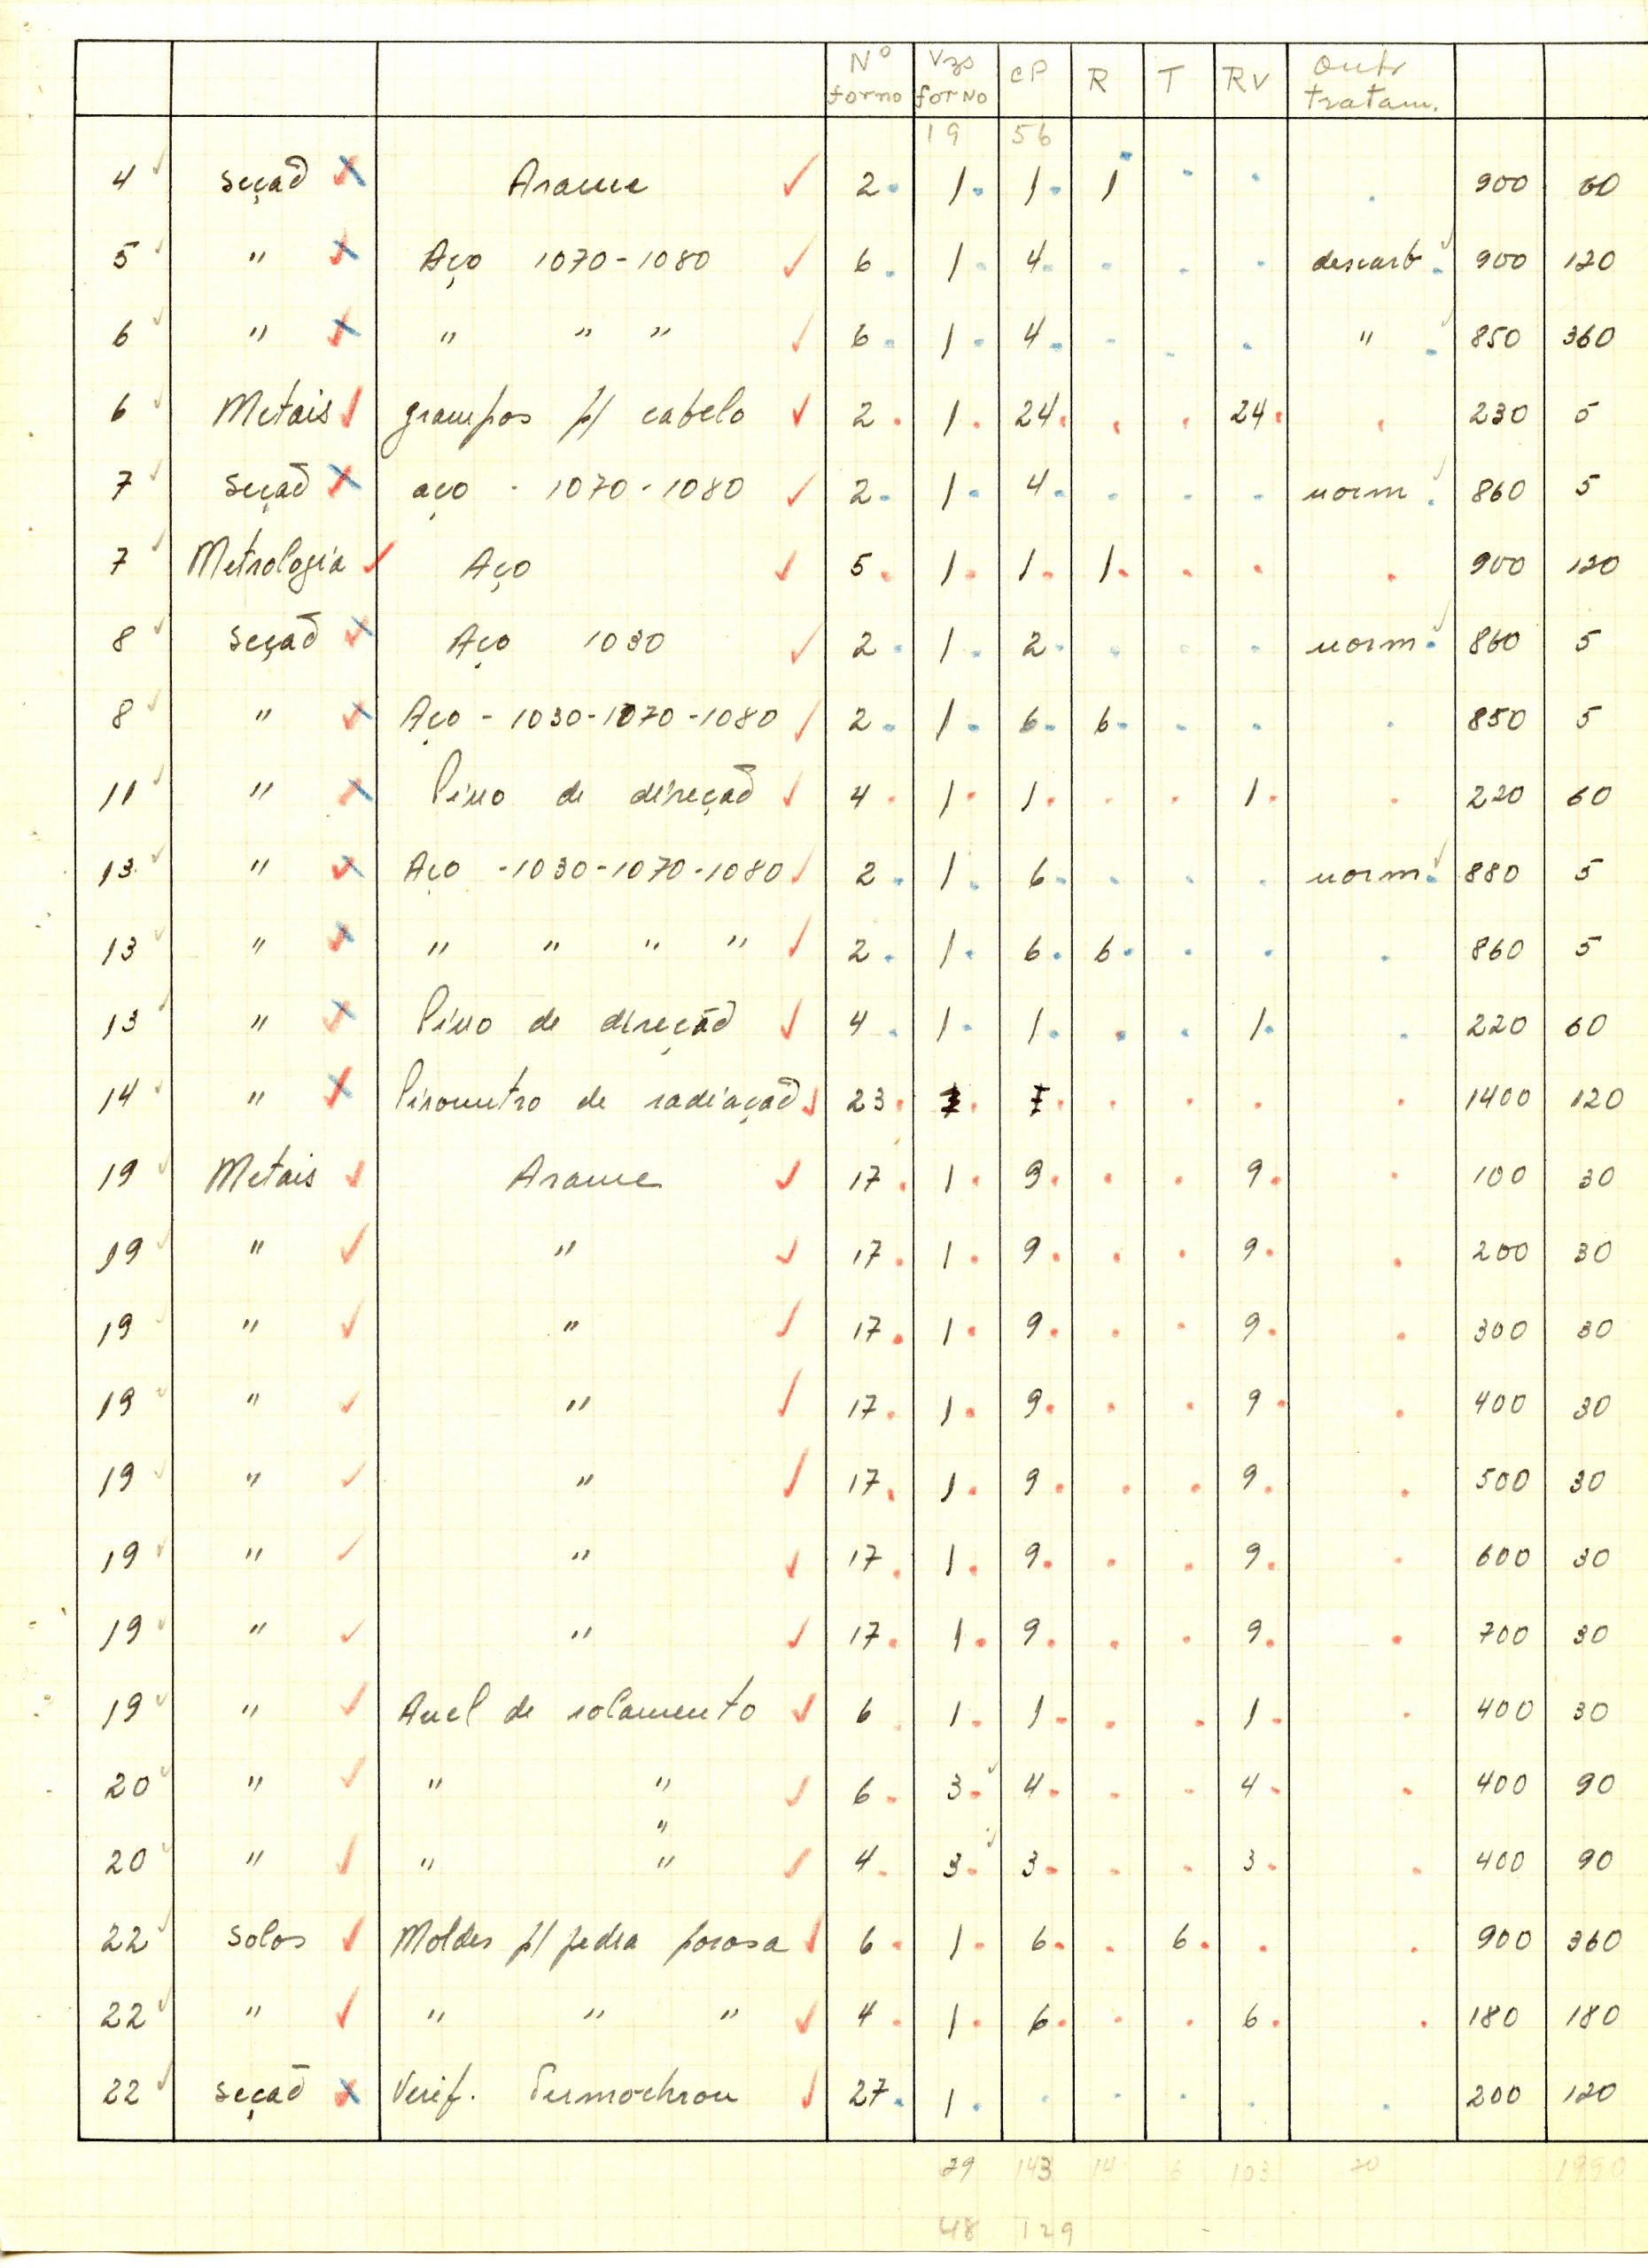 Nº forno Vzs forno CP R T RV Outr tratam.
19 56
4 Seção Arame 2 1 1 1 900 60
5 " Aço 1070-1080 6 1 4 descarb 900 120
6 " " " " 6 1 4 " 850 360
6 Metais grampos p/ cabelo 2 1 24 24 230 5
7 Seção aço - 1070-1080 2 1 4 norm 860 5
7 Metrologia Aço 5 1 1 1 900 120
8 Seção Aço 1030 2 1 2 norm 860 5
8 " Aço - 1030-1070-1080 2 1 6 6 850 5
11 " Pino de direção 4 1 1 1 220 60
13 " Aço -1030-1070-1080 2 1 6 norm 880 5
13 " " " " " 2 1 6 6 860 5
13 " Pino de direção 4 1 1 1 220 60
14 " Pirometro de radiação 23 1400 120
19 Metais Arame 17 1 9 9 100 30
19 " " 17 1 9 9 200 30
19 " " 17 1 9 9 300 30
19 " " 17 1 9 9 400 30
19 " " 17 1 9 9 500 30
19 " " 17 1 9 9 600 30
19 " " 17 1 9 9 700 30
19 " Anel de rolamento 6 1 1 1 400 30
20 " " " 6 3 4 4 400 90
"
20 " " " 4 3 3 3 400 90
22 Solos Moldes p/ pedra porosa 6 1 6 6 900 360
22 " " " " 4 1 6 6 180 180
22 Seção Verif. Termochron 27 1 200 120
29 143 14 6 103 20 1990
48 129